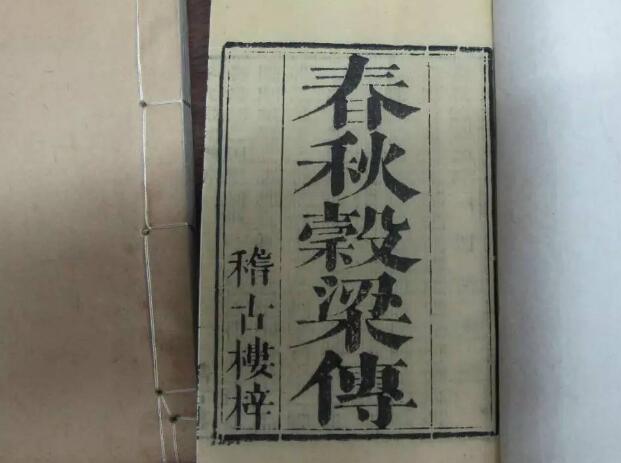 春秋穀梁傳
稽古樓梓